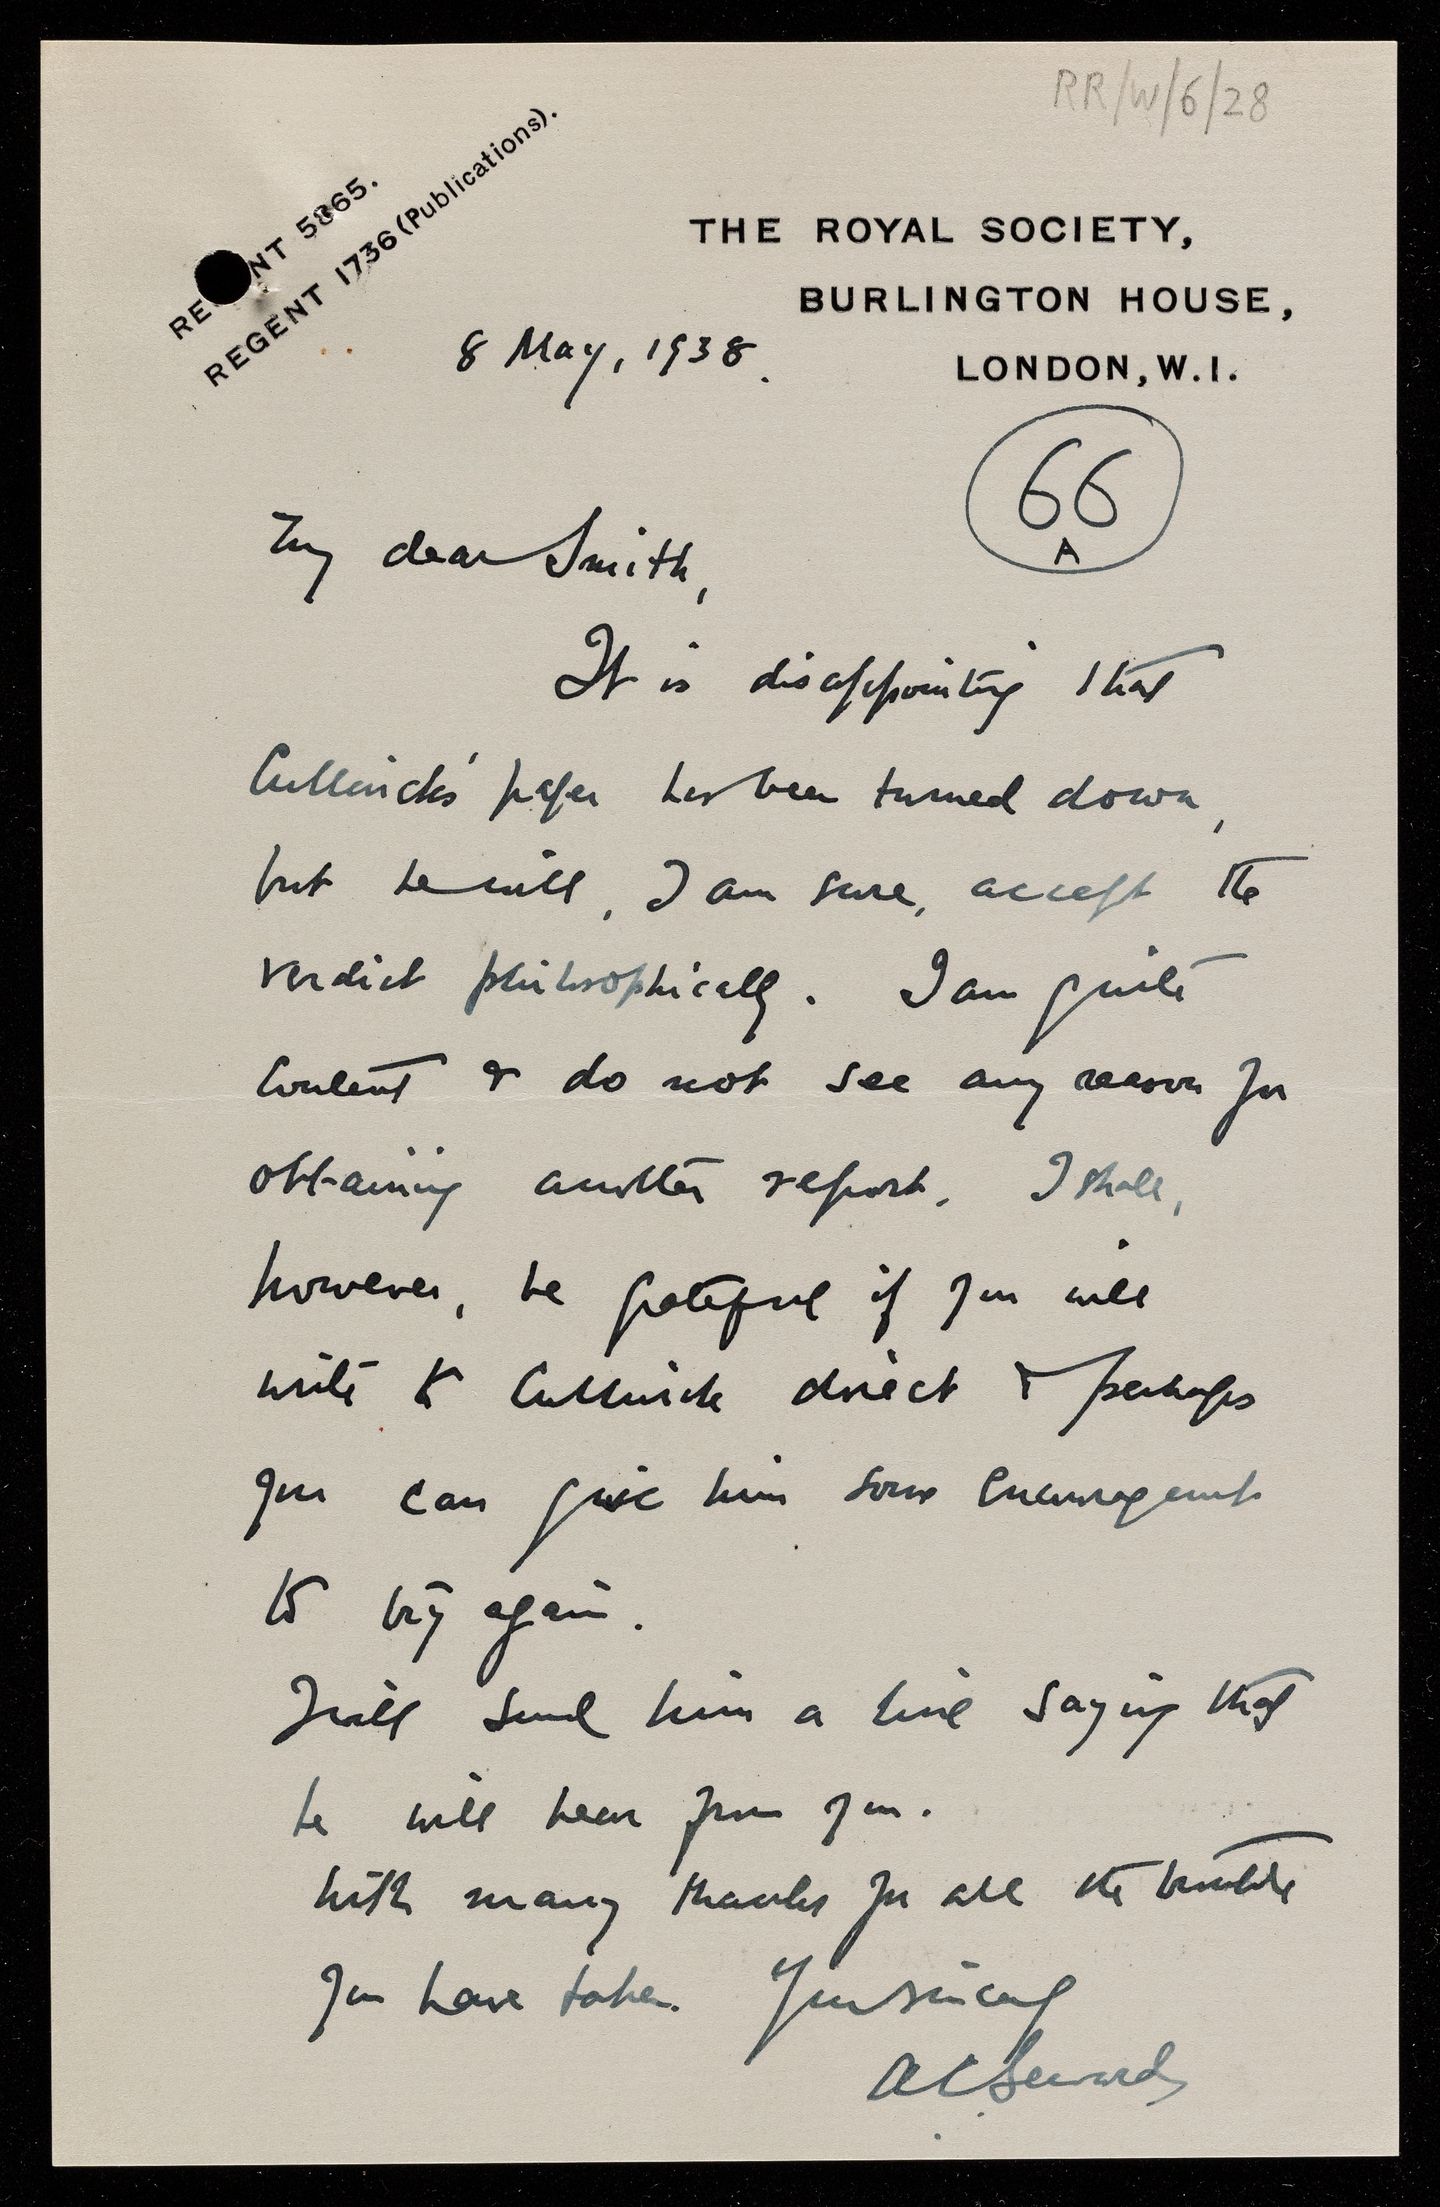 RR/W/6/28
REGENT 5865.
REGENT 1736 (Publications).
THE ROYAL SOCIETY,
BURLINGTON HOUSE,
LONDON, W.1.
8 May, 1938.
66
A
My dear Smith,
It is disappointing that
Cullwick's paper has been turned down,
but he will, I am sure, accept the
verdict philosophically. I am quite
content & do not see any reason for
obtaining another report. I shall,
however, be grateful if you will
write to Cullwick direct & perhaps
you can give him some encouragement
to try again.
I will send him a line saying that
he will hear from you.
With many thanks for all the trouble
you have taken. Yours sincerely
A C Seward